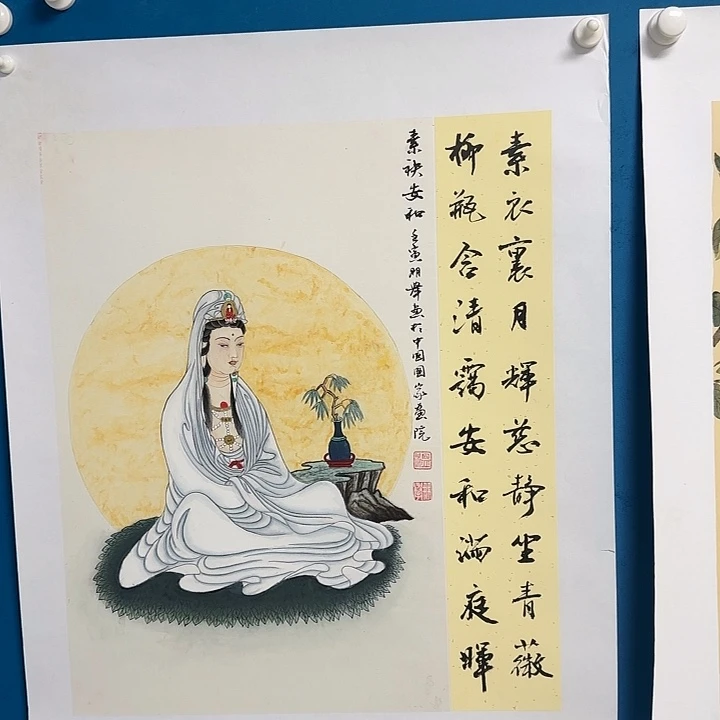 素衣裹月輝慈静坐青薇
柳瓶含清靄安和滿庭暉
素袂安和 壬寅 畫於中国国家畫院